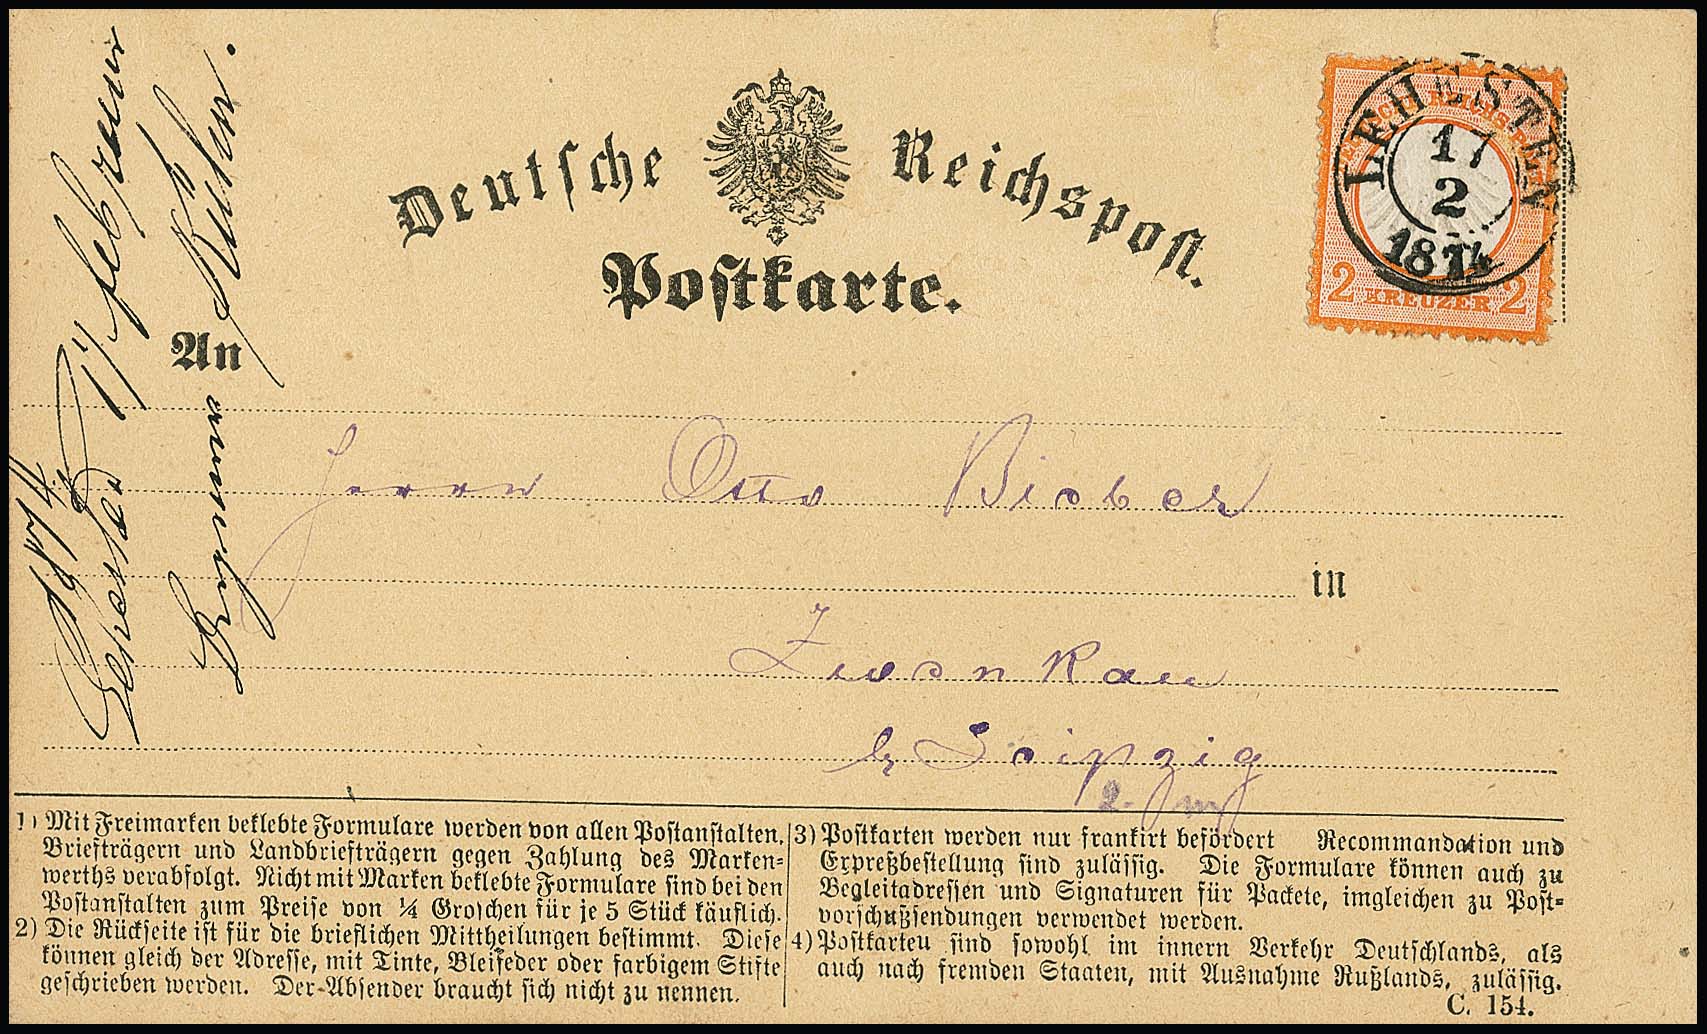 Deutsche Reichspost.
Postkarte.
DEUTSCHE REICHS-POST
2 KREUZER 2
LEHESTEN
17
2
1874
1874
Lehesten 17 Februar
An
Herrn Otto Bieber
in
Zwenkau
b Leipzig
1) Mit Freimarken beklebte Formulare werden von allen Postanstalten,
Briefträgern und Landbriefträgern gegen Zahlung des Marken-
werths verabfolgt. Nicht mit Marken beklebte Formulare sind bei den
Postanstalten zum Preise von ¼ Groschen für je 5 Stück käuflich.
2) Die Rückseite ist für die brieflichen Mittheilungen bestimmt. Diese
können gleich der Adresse, mit Tinte, Bleifeder oder farbigem Stifte
geschrieben werden. Der Absender braucht sich nicht zu nennen.
3) Postkarten werden nur frankirt befördert Recommandation und
Expreßbestellung sind zulässig. Die Formulare können auch zu
Begleitadressen und Signaturen für Packete, imgleichen zu Post-
vorschußsendungen verwendet werden.
4) Postkarten sind sowohl im innern Verkehr Deutschlands, als
auch nach fremden Staaten, mit Ausnahme Rußlands, zulässig.
C. 154.